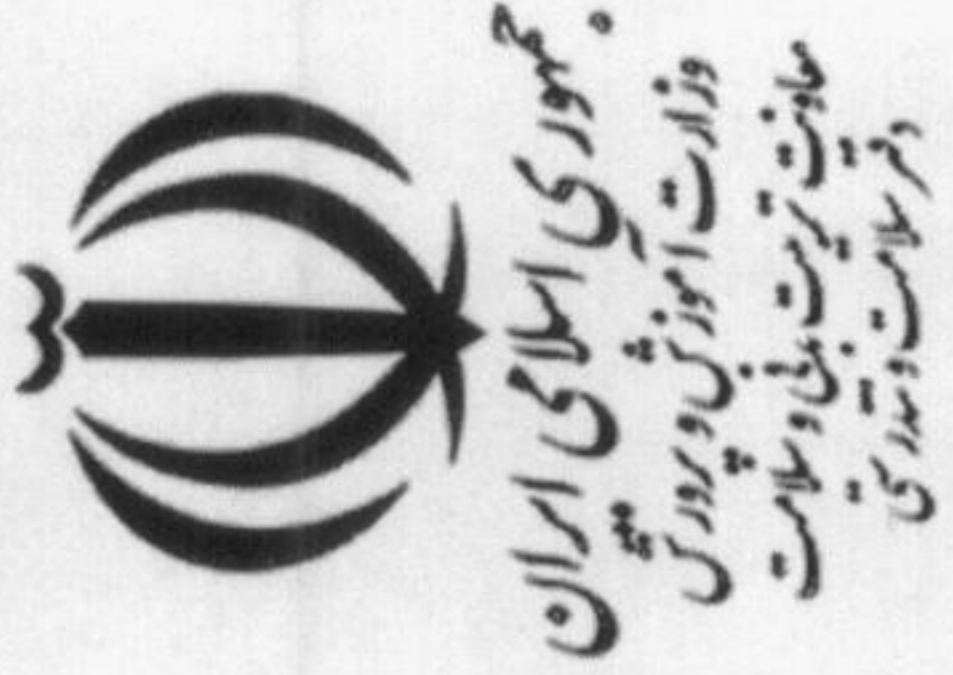 جمهوری اسلامی ایران
وزارت آموزش و پرورش
معاونت تربیت بدنی و سلامت
دفتر سلامت و تندرستی